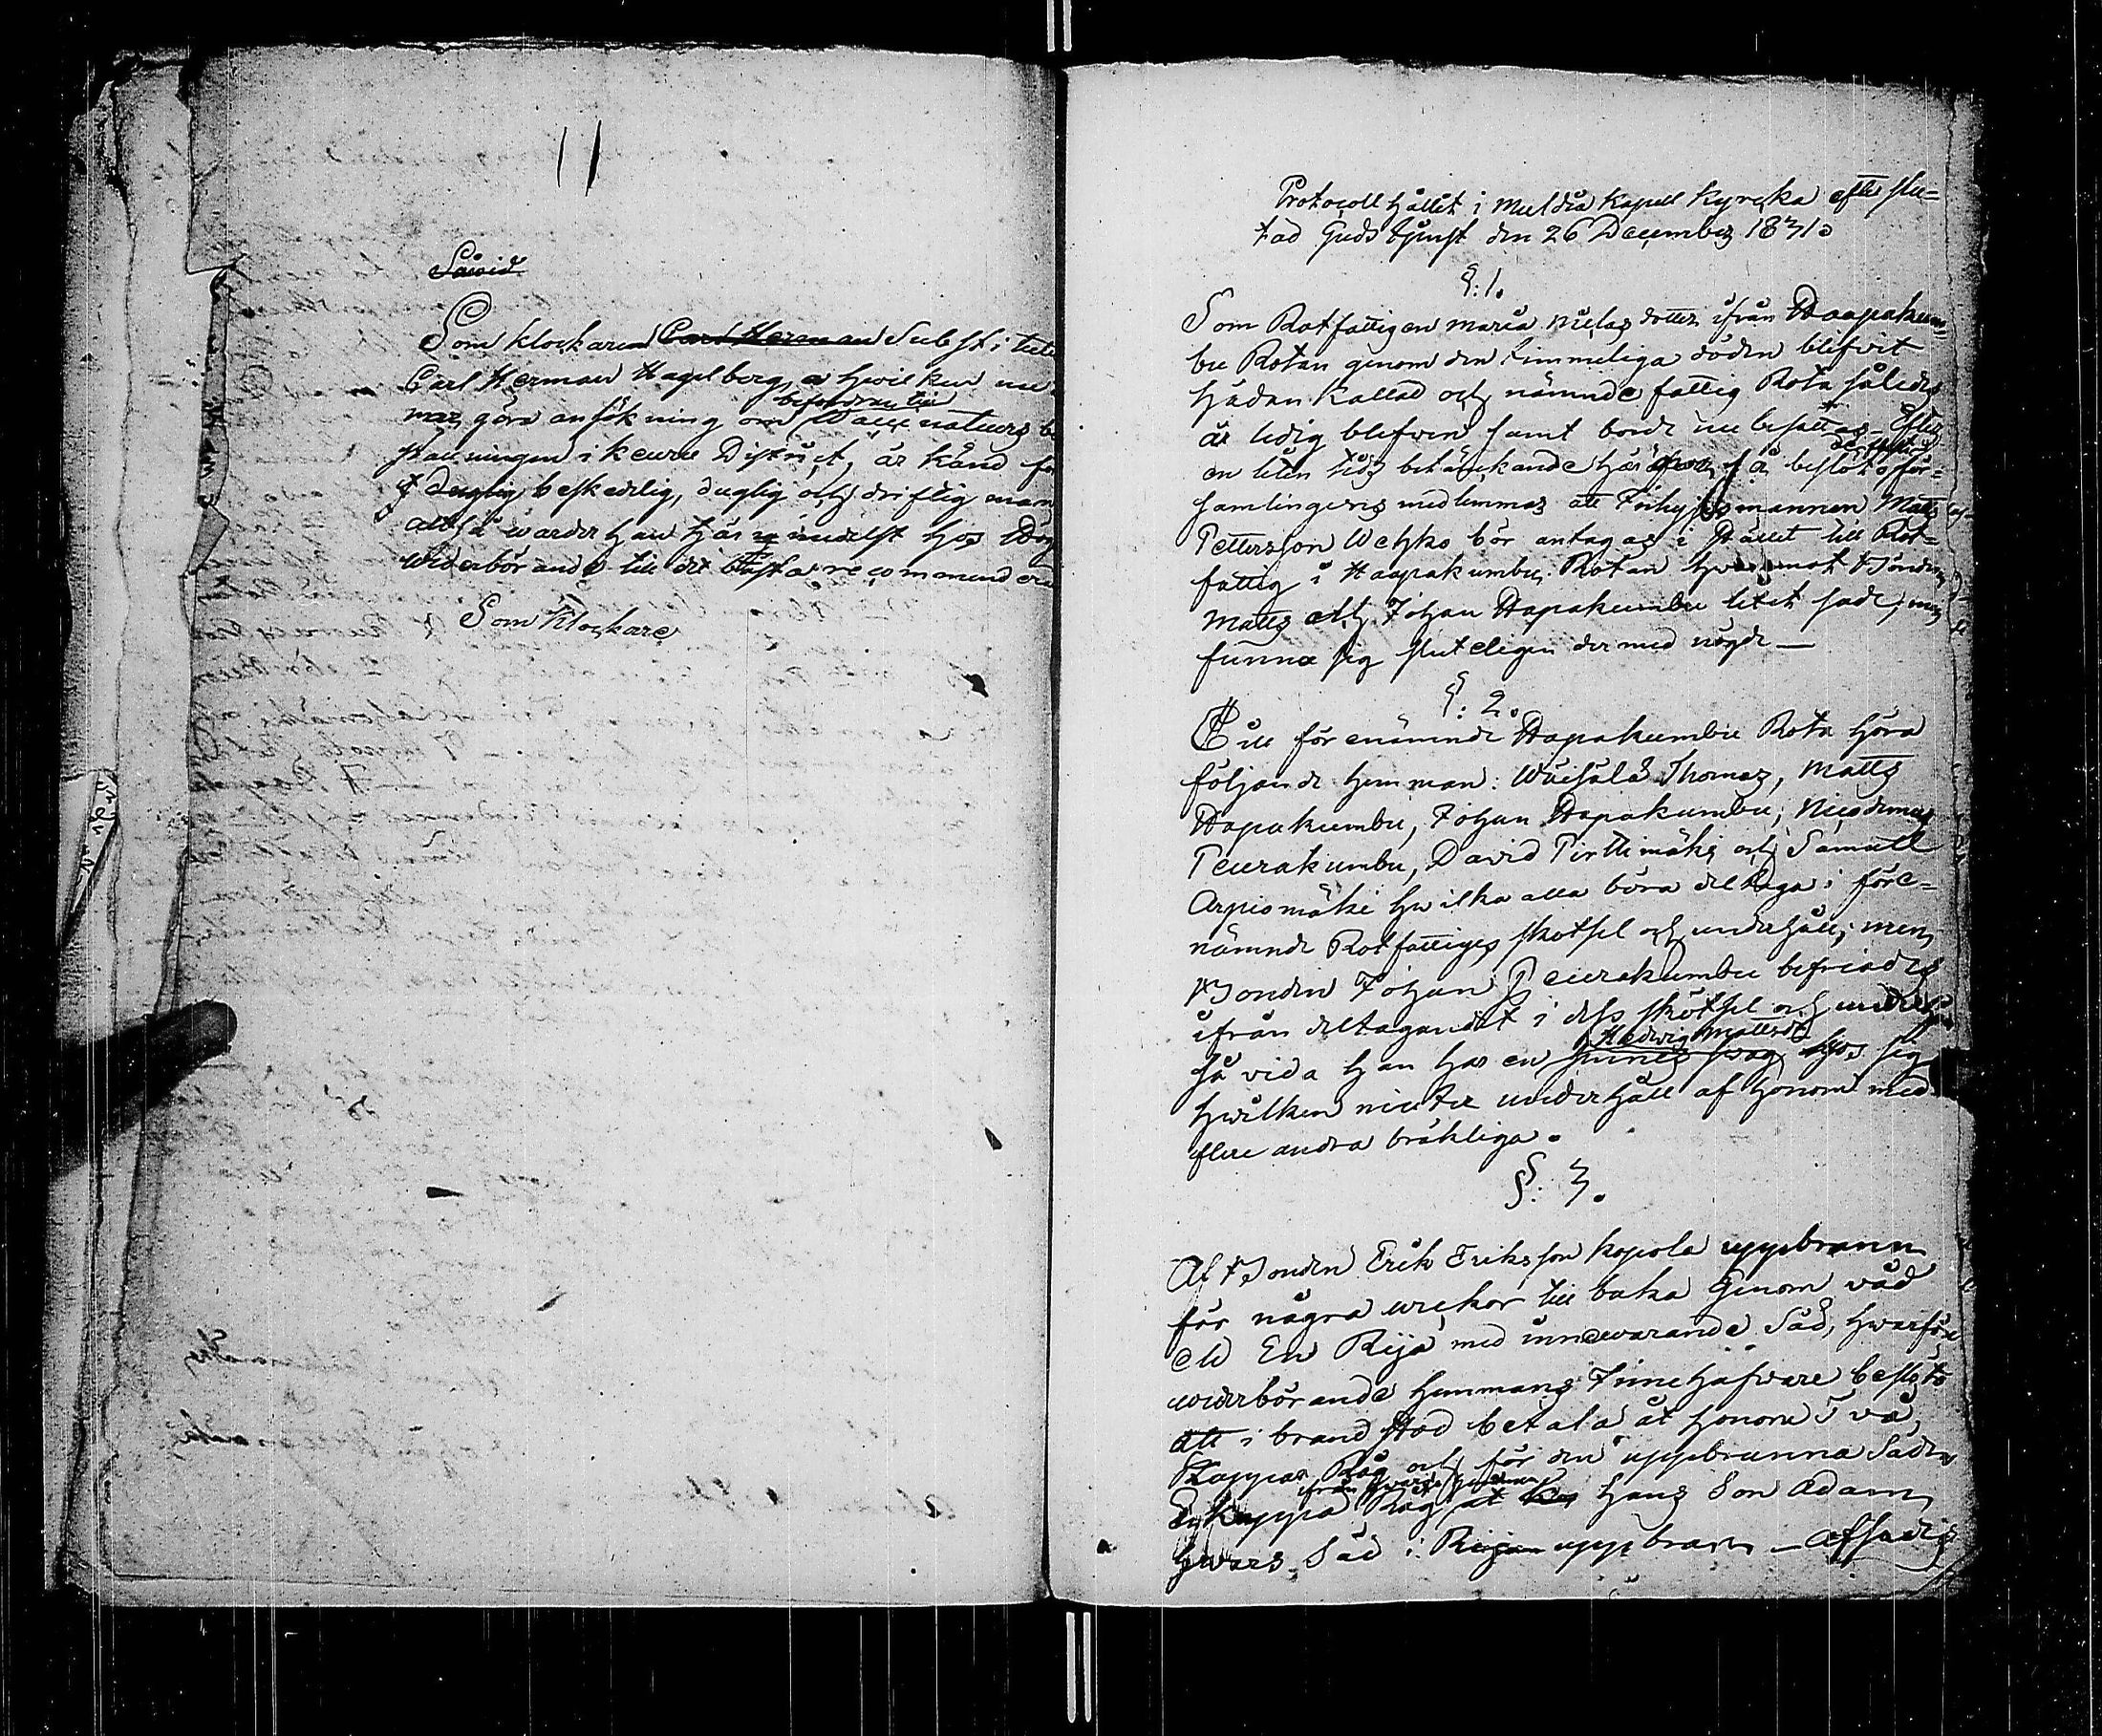 Såwid
Som Klockaren Carl Herman Substitut
Carl Herman Hagelberg, hwilken
göra ansökning om befordran till Vaccinateurs
i Keuru District, är känd
Duglig beskedelig, duglig och driftig man
alltså warder han härmedelst hos
Wederbörande till det bästa recommenderad
Som Klockare
Protocoll hållit i Multia Kapell Kyrcka efter slu-
tad Gudstjenst den 26 December 1831.
§: 1.
Som Rotfattigen Maria Nielsdotter ifrån Haapakum-
bu Rotan genom den timmeliga döden blifvit
hädan Kallad och nämnde fattig Rota således
är ledig blefven samt borde nu besättas - Efter
en liten tids betänckande häröfver så beslöto för-
samlingens medlemmar att Inhysesmannen Matts
Pettersson Wehko bör antagas i stället till Rot-
fattig i Haapakumbu Rotan hwaremot Bönderne
Matts och Johan Haapakumbu litet sade, men
funno sig sluteligen dermed nögde —
§: 2.
Till förenämnde Hapakumbu Rota höra
följande hemman: Wäisälä Thomas, Matts
Hapakumbu, Johan Hapakumbu, Nicodemus
Peurakumbu, David Pirttimäki och Samuel
Arpiomäki hwilka alla böra deltaga i före-
nämnde Rotfattiges skötsel och underhåll; men
Bonden Johan Peurakumbu befriades
ifrån deltagandet i dess skötsel och underhåll
så vida han har en Hedwig Mattsdr hos sig
hwilken niuter underhåll af honom med
flere andra bräkliga.
§: 3.
Af Bonden Erik Eriksson Kopola uppbrann
för några weckor tillbaka Genom våd
eld En Rija med innewarande Säd, hwarföre
wederbörande hemmans Innehafware beslöto
att i brandstod betala åt honom två
Kappar Råg och för den uppbrunna Säden
En kappa Råg från hwarje hemman åt hans Son Adam
hwars Säd i Rijan uppbrann - Afsades